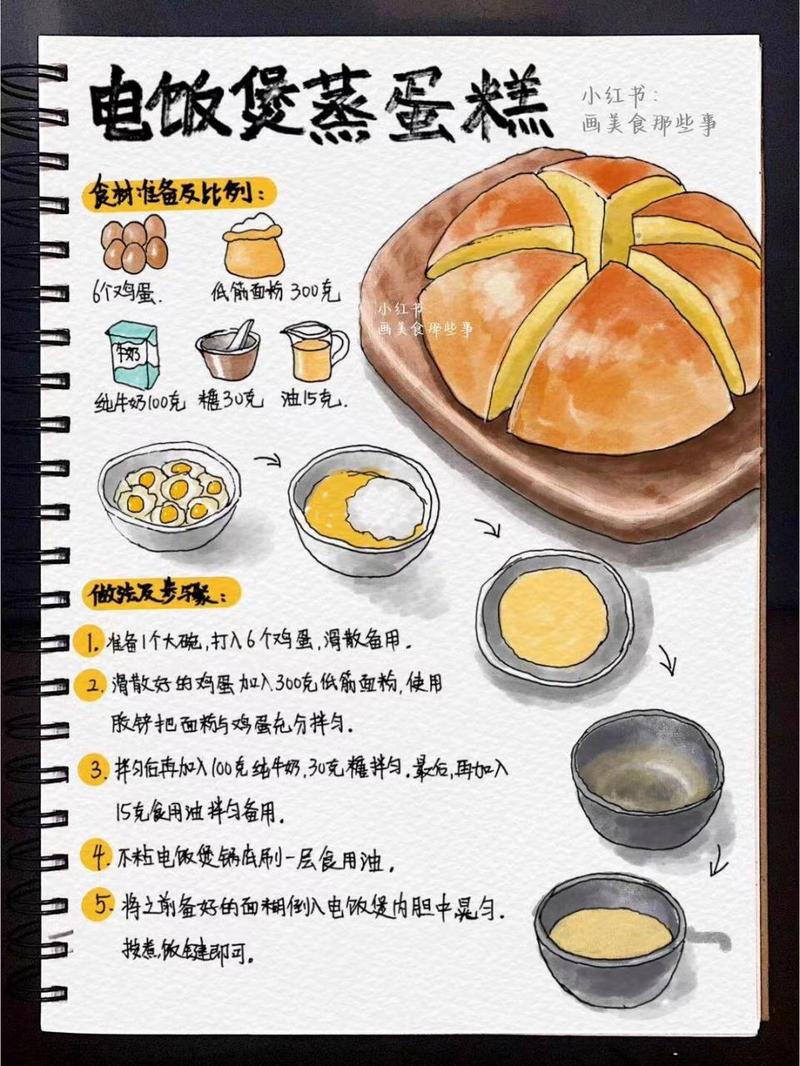 电饭煲蒸蛋糕
小红书:
画美食那些事
食材准备及比例:
6个鸡蛋.
低筋面粉 300克
小红书
画美食那些事
牛奶
纯牛奶100克
糖30克
油15克.
做法及步骤:
1. 准备1个大碗,打入6个鸡蛋,滑散备用.
2. 滑散好的鸡蛋加入300克低筋面粉,使用
胶铲把面粉与鸡蛋充分拌匀.
3. 拌匀后再加入100克纯牛奶,30克糖拌匀.最后,再加入
15克食用油拌匀备用.
4. 不粘电饭煲锅底刷一层食用油.
5. 将之前备好的面糊倒入电饭煲内胆中晃匀.
按煮饭键即可.